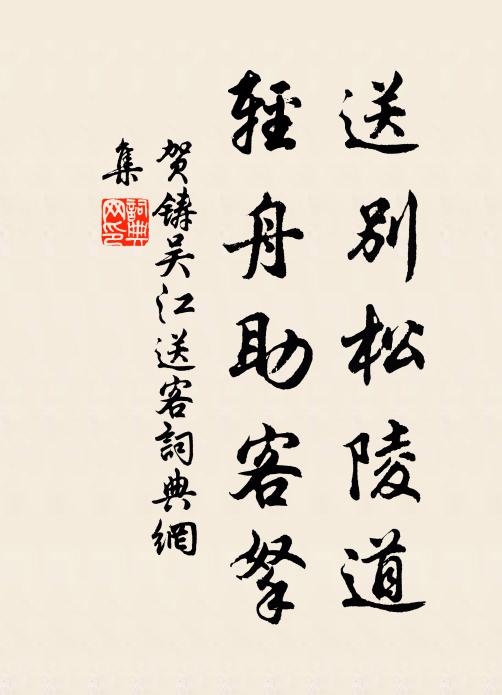 送别松陵道
輕舟助客拏
贺鑄吴江送客詞典網
集
詞典
网印